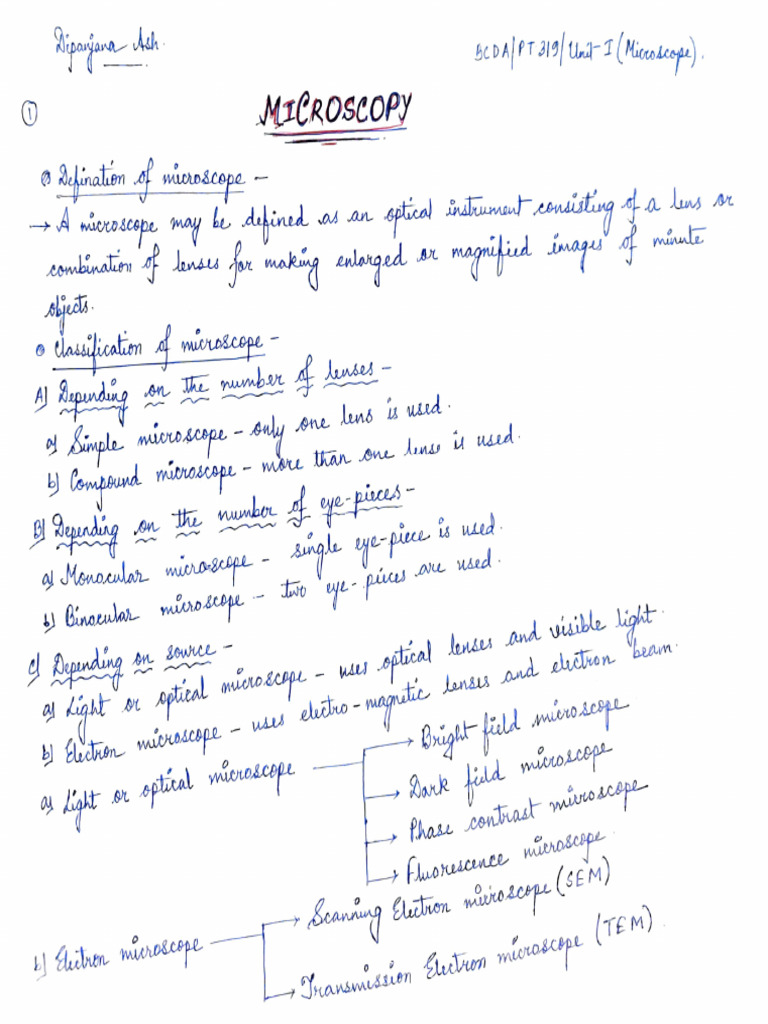 Dipanjana Ash.
BCDA/PT319/Unit-I (Microscope).
①
MICROSCOPY
Defination of microscope –
→ A microscope may be defined as an optical instrument consisting of a lens or
combination of lenses for making enlarged or magnified images of minute
objects.
Classification of microscope –
A) Depending on the number of lenses –
a) Simple microscope – only one lens is used.
b) Compound microscope – more than one lense is used.
B) Depending on the number of eye-pieces –
a) Monocular microscope – single eye-piece is used.
b) Binocular microscope – two eye-pieces are used.
C) Depending on source –
a) Light or optical microscope – uses optical lenses and visible light.
b) Electron microscope – uses electro-magnetic lenses and electron beam.
a) Light or optical microscope
→ Bright field microscope
→ Dark field microscope
→ Phase contrast microscope
→ Fluorescence microscope.
b) Electron microscope
→ Scanning Electron microscope (SEM)
→ Transmission Electron microscope (TEM)